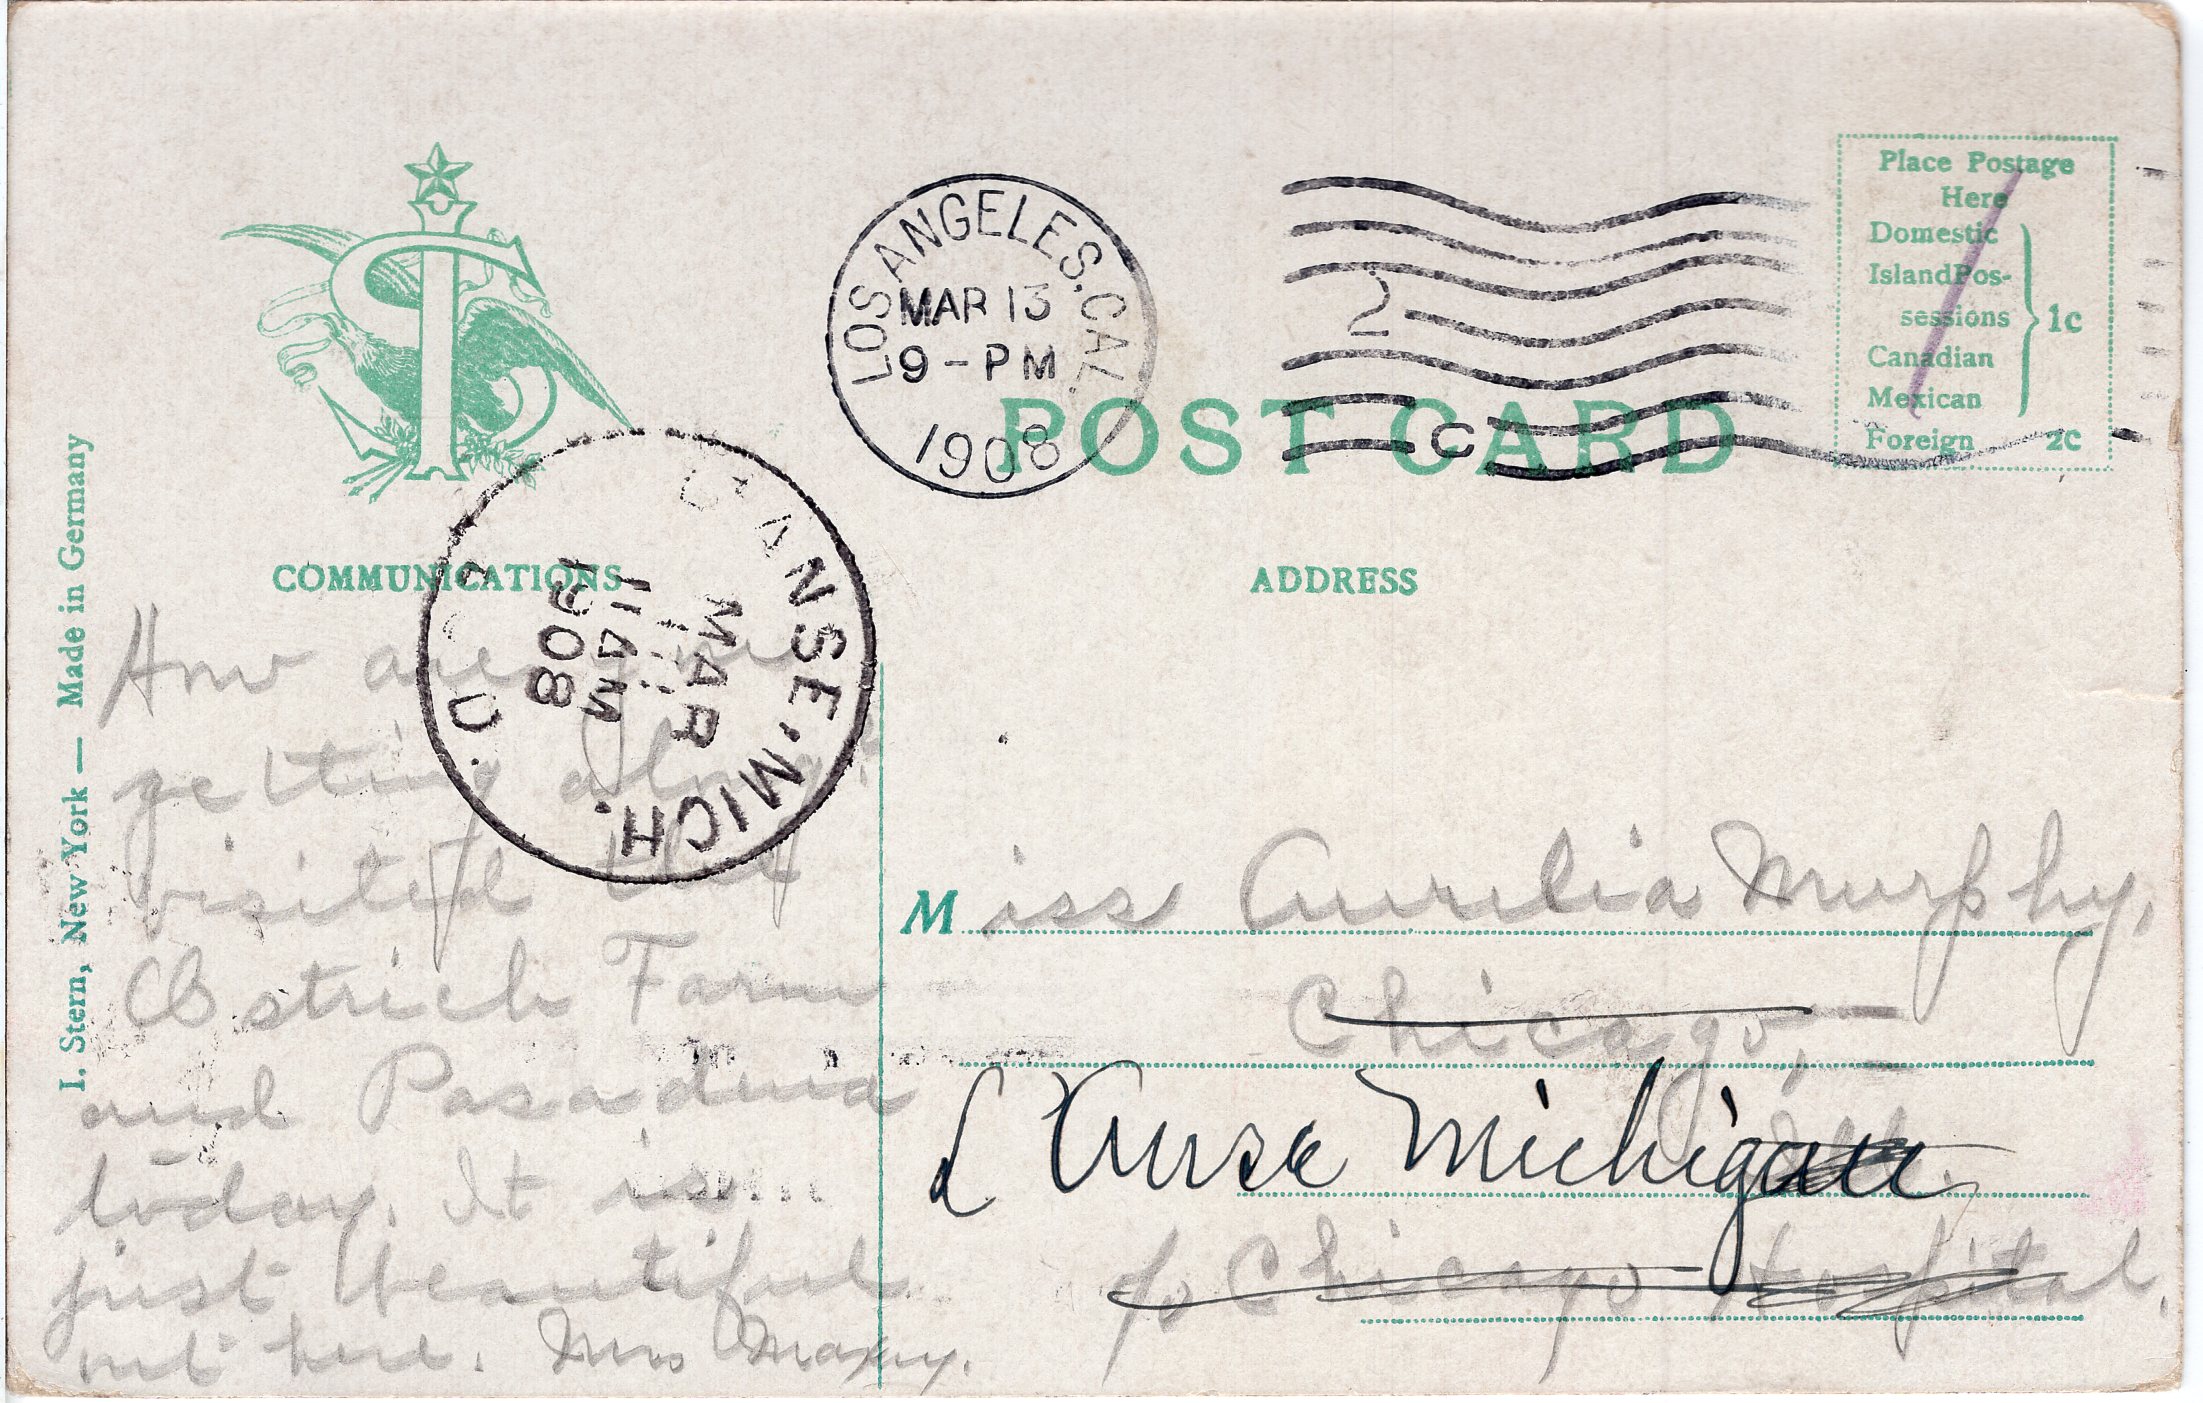 LOS ANGELES, CAL.
MAR 13
9-PM
1908
2
C
Place Postage
Here
Domestic
Island Pos-
sessions
Canadian
Mexican
1c
Foreign 2c
POST CARD
COMMUNICATIONS
ADDRESS
L'ANSE, MICH.
MAR
11 AM
1908
I. Stern, New York — Made in Germany
How are
getting along?
visited the
Ostrich Farm
and Pasadena
today. It is
just beautiful
out here. Mrs Maxey.
Miss Aurelia Murphy,
Chicago,
Ill.
L'Anse Michigan
c/o Chicago Hospital.